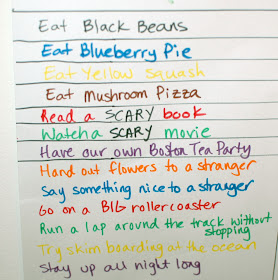 Eat Black Beans
Eat Blueberry Pie
Eat Yellow Squash
Eat Mushroom Pizza
Read a SCARY book
Watch a SCARY movie
Have our own Boston Tea Party
Hand out flowers to a stranger
Say something nice to a stranger
Go on a BIG roller coaster
Run a lap around the track without
stopping
Try skim boarding at the ocean
Stay up all night long